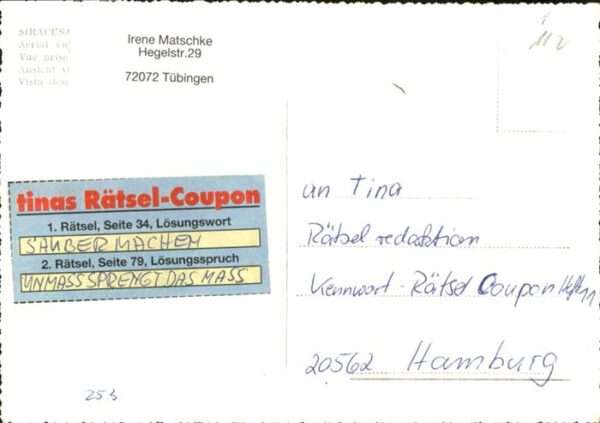 SIRACUSA
Aerial
Vue prise
Ansicht
Vista
Irene Matschke
Hegelstr.29
72072 Tübingen
tinas Rätsel-Coupon
1. Rätsel, Seite 34, Lösungswort
SAUBERMACHEN
2. Rätsel, Seite 79, Lösungsspruch
UNMASS SPRENGT DAS MASS
an Tina
Rätselredaktion
Kennwort - Rätsel Coupon Heft 11
20562 Hamburg